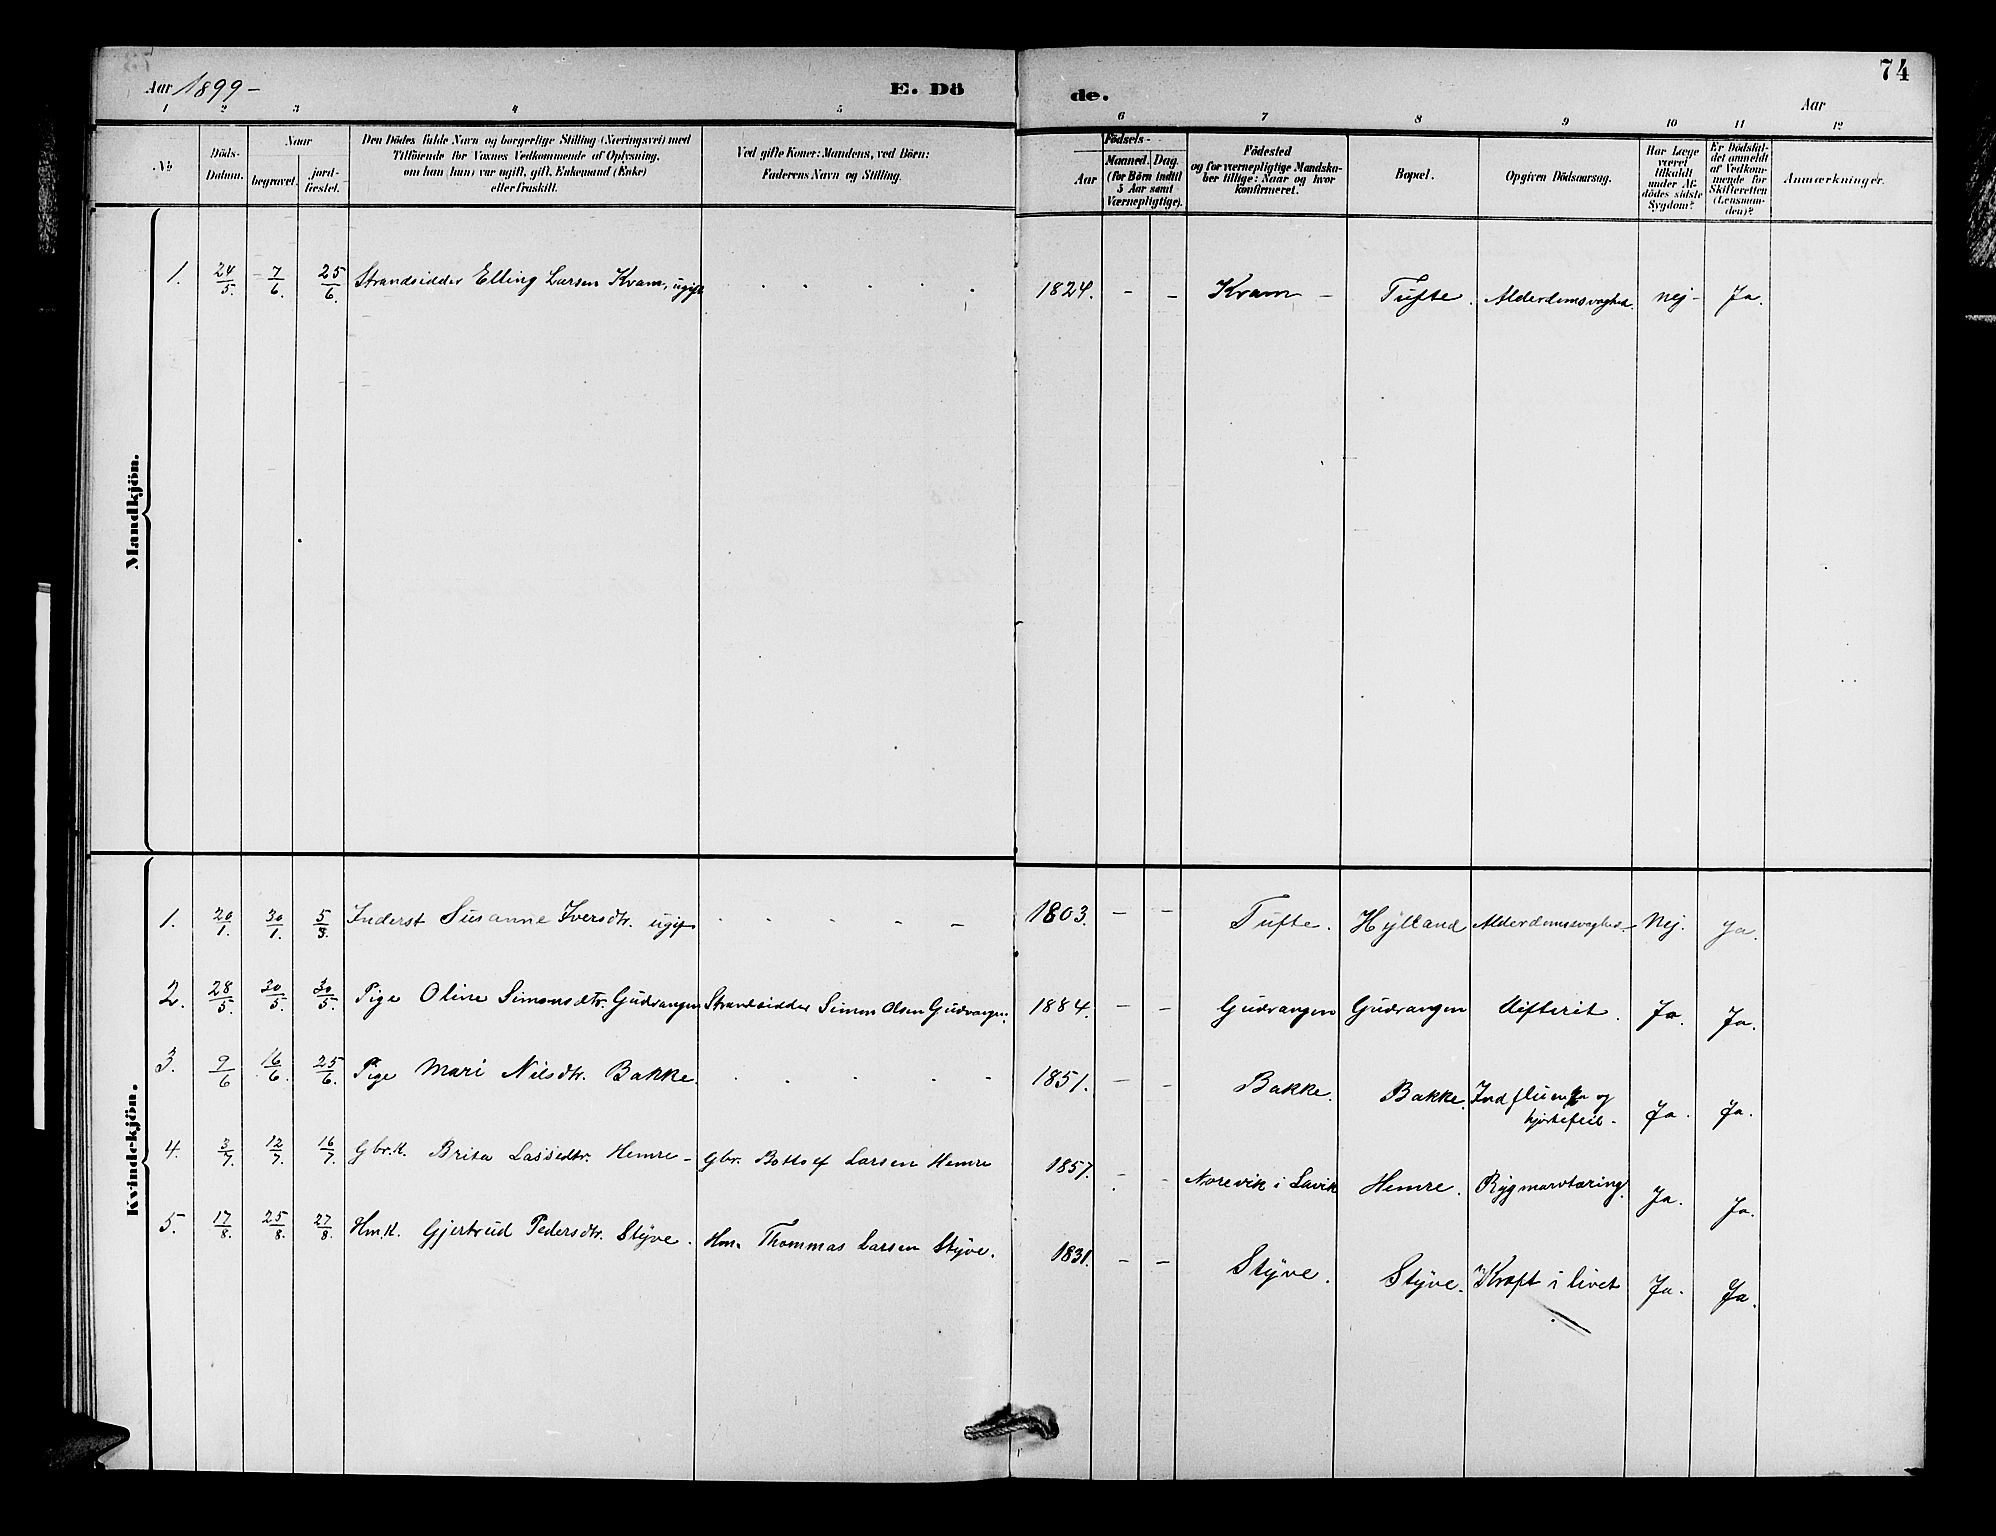 74
Aar 1899 -
E. Dö
de.
Aar
1 2 3 4 5 6 7 8 9 10 11 12
No
Döds-Datum.
Naar
begravet.
jord-fæstet.
Den Dödes fulde Navn og borgerlige Stilling (Næringsvei) med
Tilföiende for Voxnes Vedkommende af Oplysning,
om han (hun) var ugift, gift, Enkemand (Enke)
eller fraskilt.
Ved gifte Koner: Mandens, ved Börn:
Faderens Navn og Stilling.
Födsels-
Aar
Maaned. Dag.
(for Börn indtil
5 Aar samt
Værnepligtige).
Födested
og for værnepligtige Mandska-
ber tillige: Naar og hvor
konfirmeret.
Bopæl.
Opgiven Dödsaarsag.
Har Læge
været
tilkaldt
under Af-
dödes sidste
Sygdom?
Er Dödsfal-
det anmeldt
af Vedkom-
mende for
Skifteretten
(Lensman-
den)?
Anmærkninger.
Mandkjön.
1. 24/5. 7/6. 25/6. Strandsidder Elling Larsen Kvam, ugift 1824. - - Kvam - Tufte. Alderdomssvaghed. nej - Ja.
Kvindekjön.
1. 20/1. 30/1. 5/3. Inderst Susanne Iversdtr. ugift - - 1803. - - Tufte. Hylland Alderdomssvaghed. Nej. Ja.
2. 28/5. 30/5. 30/5. Pige Oline Simonsdtr. Gudvangen Strandsidder Simon Olsen Gudvangen. 1884. - - Gudvangen Gudvangen Difterit. Ja. Ja.
3. 9/6 16/6. 25/6. Pige Mari Nilsdtr. Bakke. 1851. - - Bakke. Bakke. Indfluenza og
hjertefeil. Ja. Ja.
4. 3/7. 12/7. 16/7. Gbr.K. Brita Lassedtr. Hemre - Gbr. Bottolf Larsen Hemre 1857. - - Norevik i Lavik Hemre. Rygmarvtæring. Ja. Ja.
5. 17/8. 25/8. 27/8. Hm.K. Gjertrud Pedersdtr. Styve. Hm. Thommas Larsen Styve. 1831. - - Styve. Styve. Kræft i livet Ja. Ja.